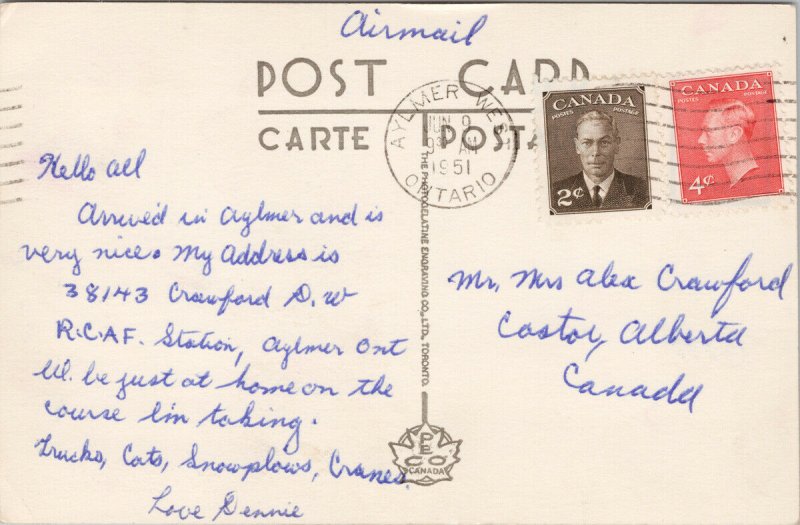 Airmail
POST CARD
CARTE POSTA
AYLMER WEST
JUN 9
9 30 AM
1951
ONTARIO
CANADA
POSTES POSTAGE
2¢
CANADA
POSTES POSTAGE
4¢
Hello all
Arrived in Aylmer and is
very nice. My Address is
38143 Crawford D.W
R.C.A.F. Station, Aylmer Ont
Ill be just at home on the
course I'm taking.
Trucks, Cats, Snowplows, Cranes.
Love Dennie
THE PHOTOGELATINE ENGRAVING CO., LTD., TORONTO.
PE
CO
CANADA
Mr, Mrs Alex Crawford
Castor, Alberta
Canada